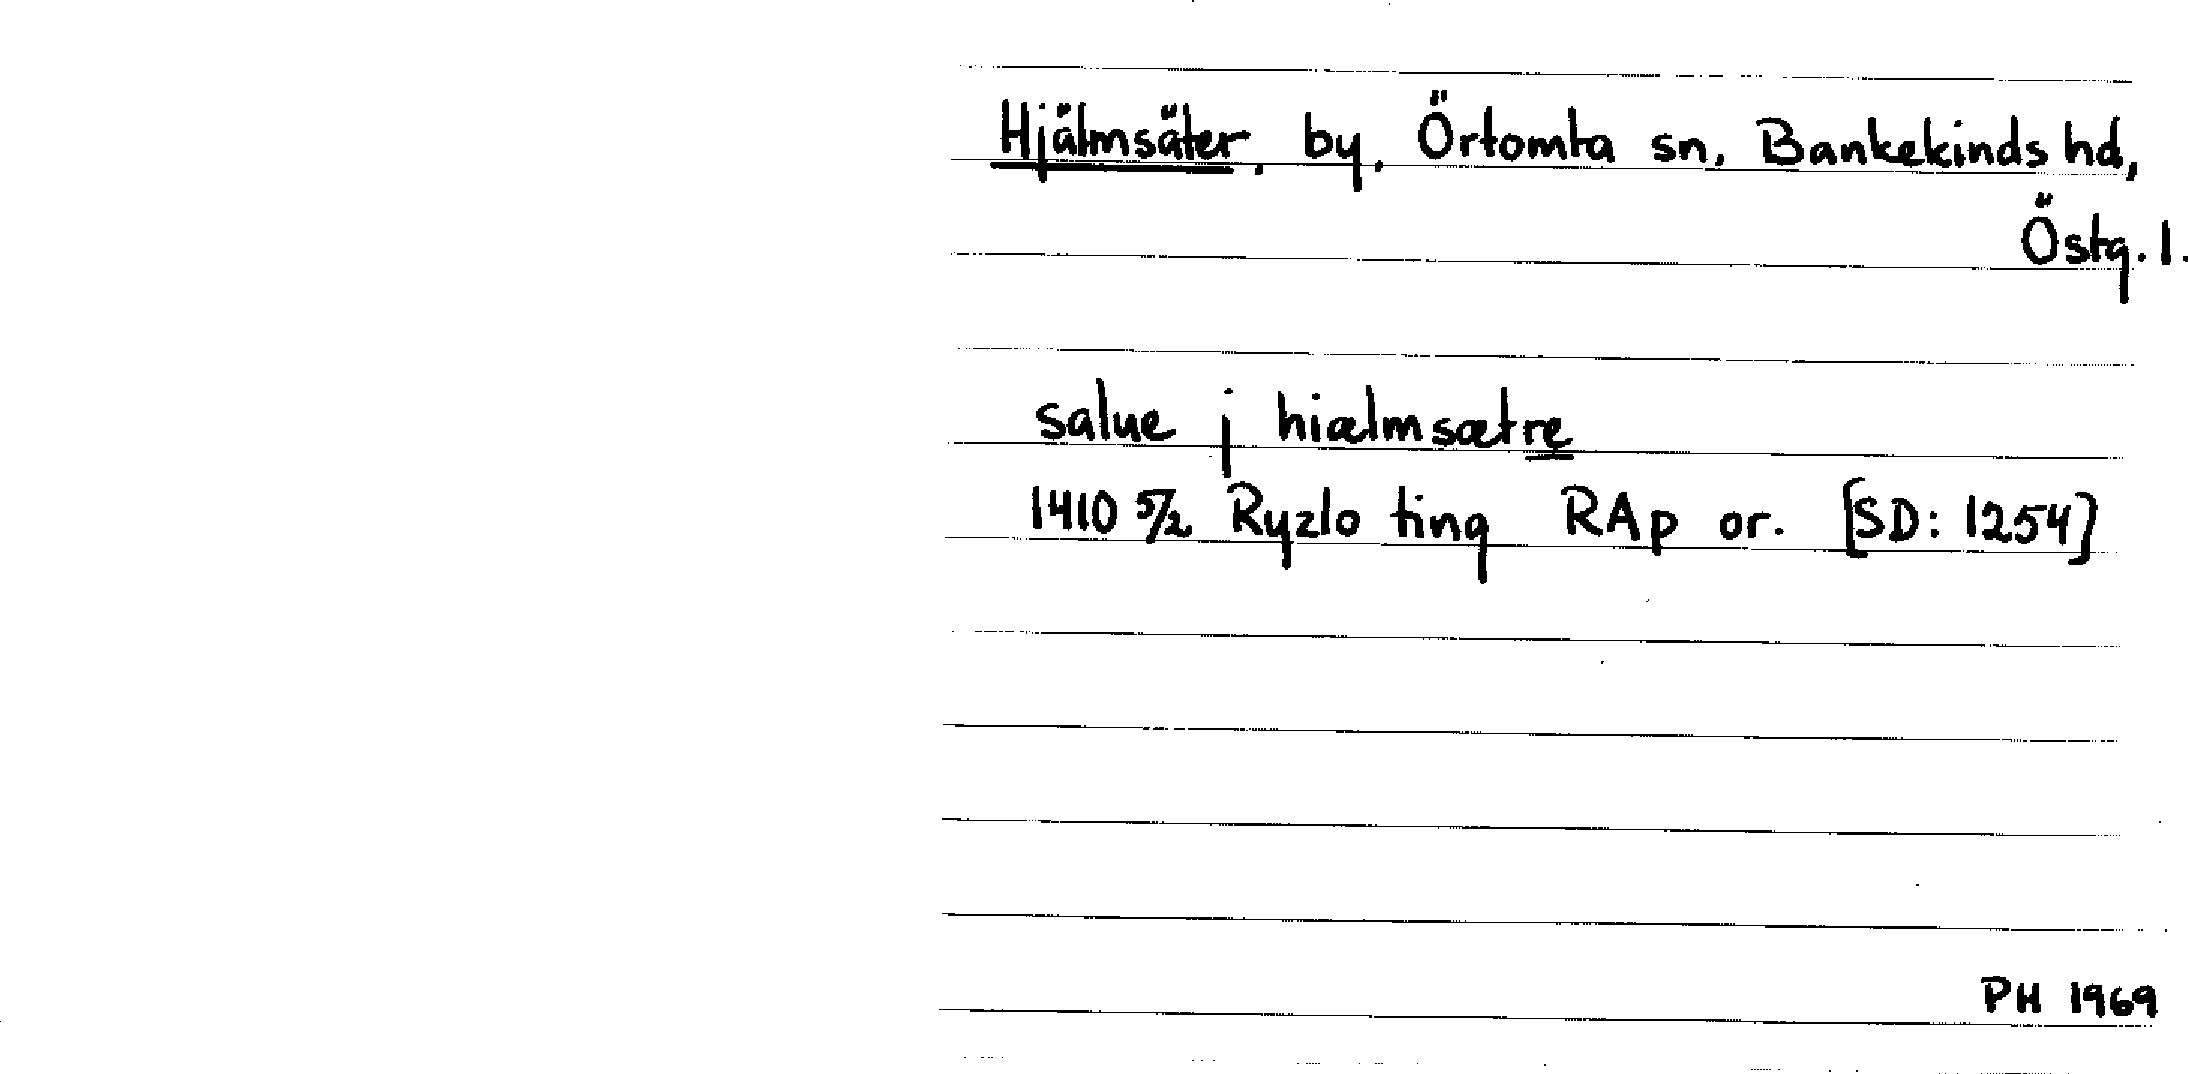 Hjälmsäter, by, Örtomta sn, Bankekinds hd,
Östg. l.
salue j hiælmsætre
1410 5/2 Ryzlo ting RAp or. [SD: 1254]
PH 1969